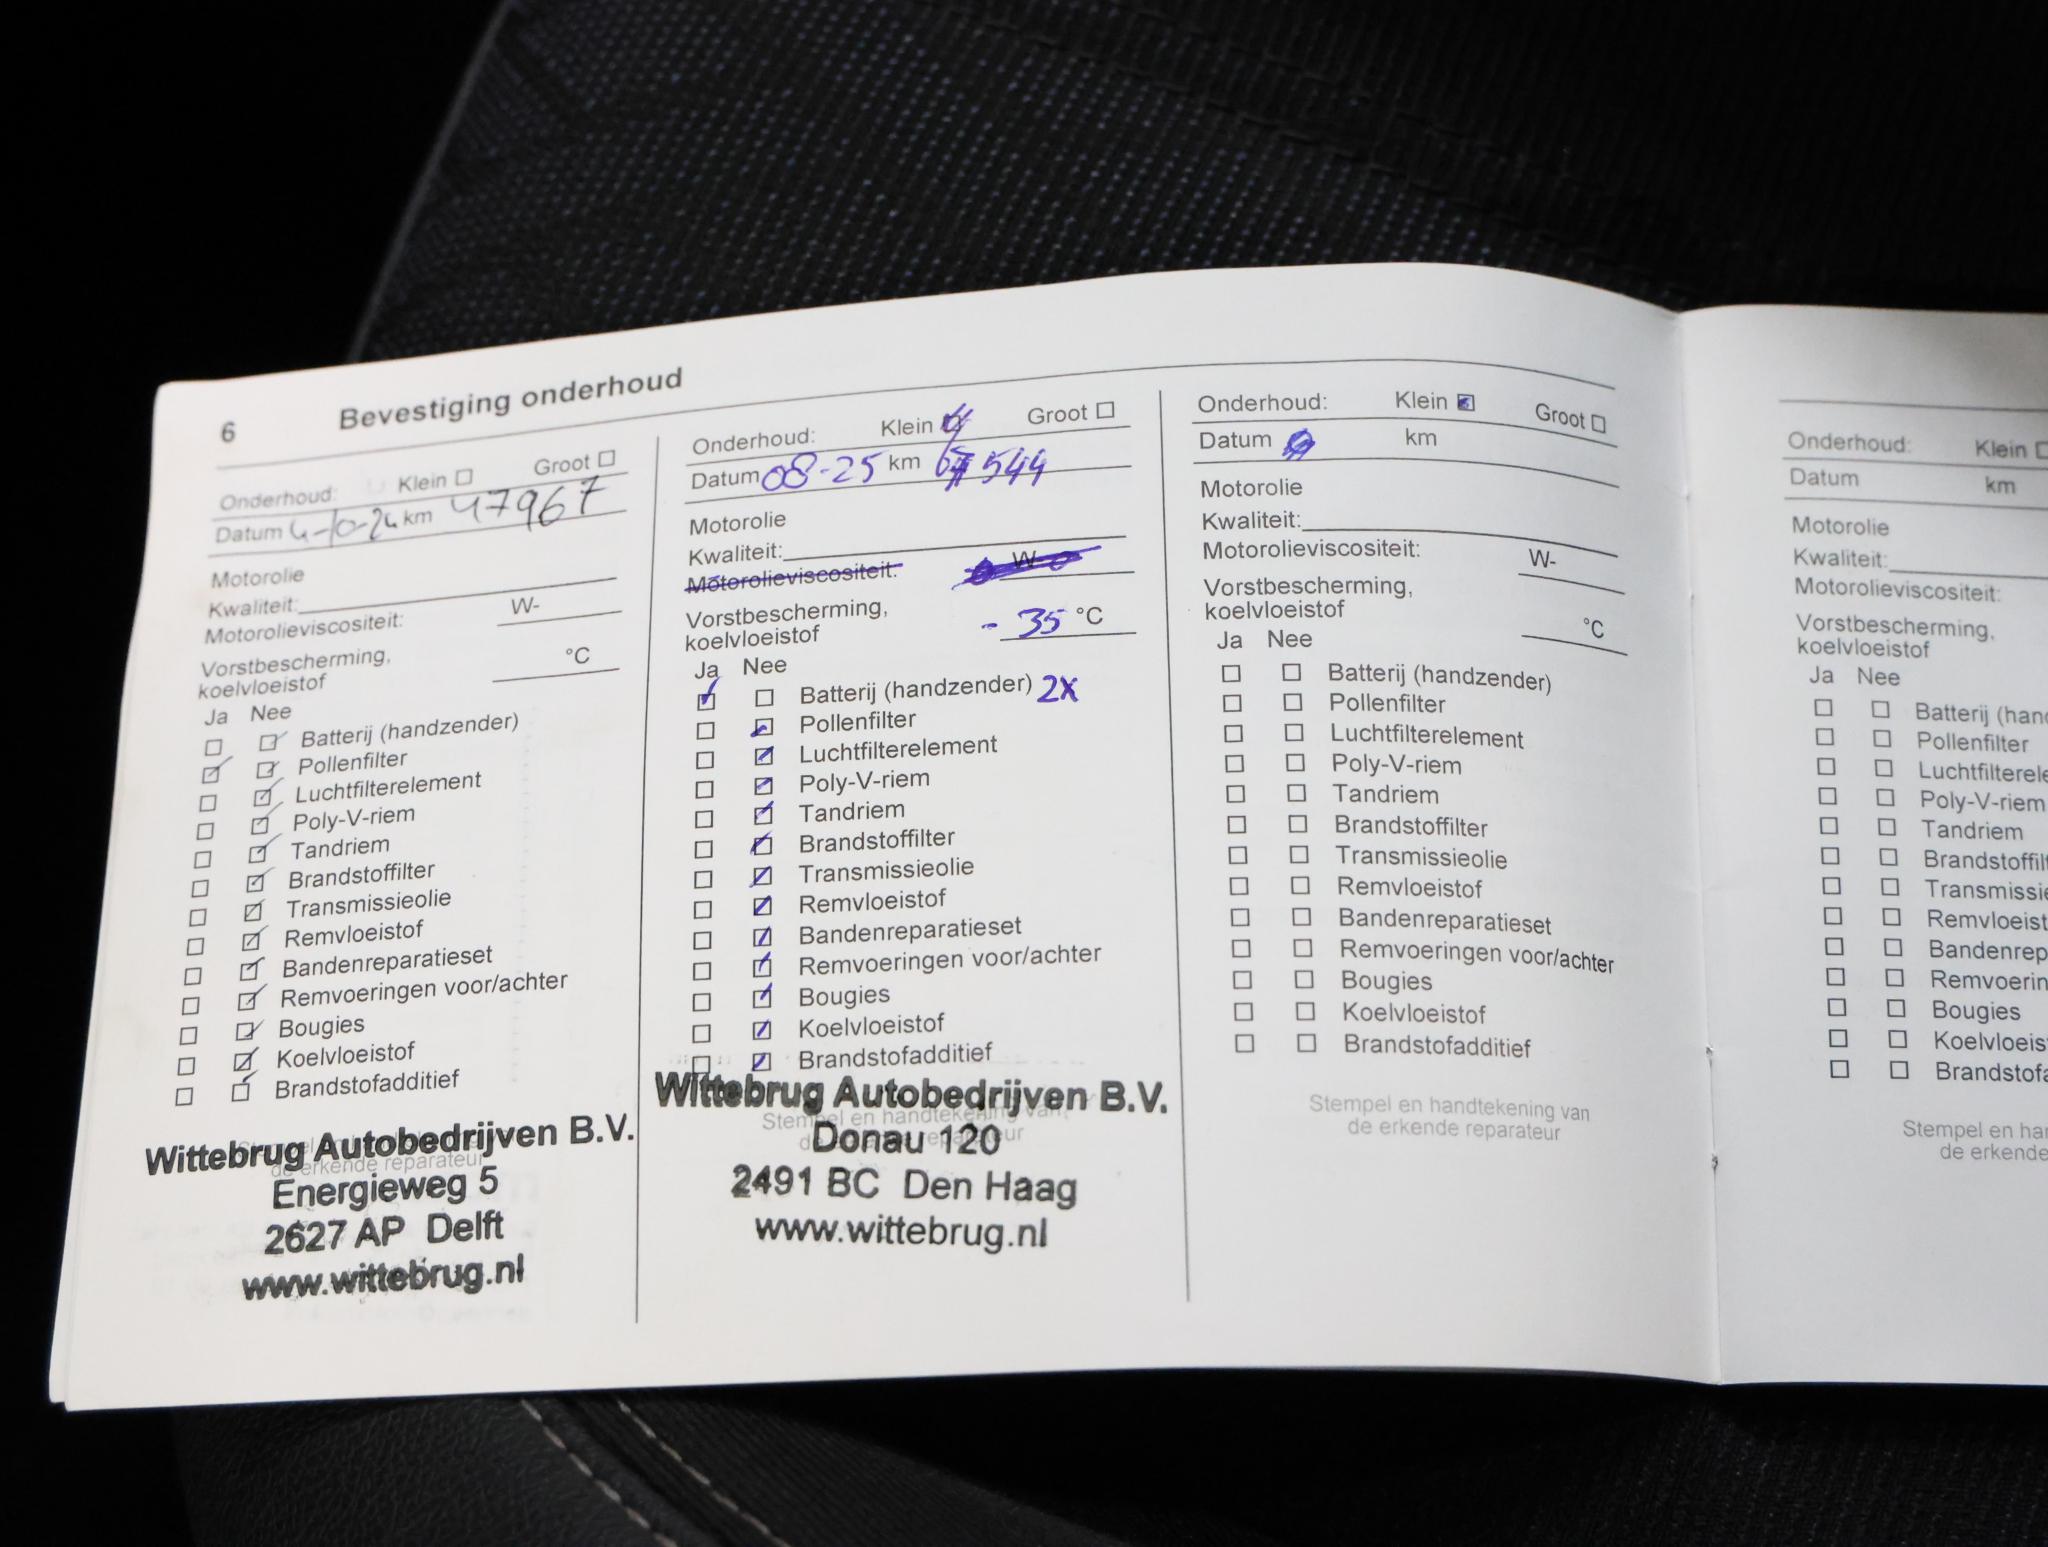 6 Bevestiging onderhoud
Onderhoud: Klein Groot
Datum 4-10-24 km 47967
Motorolie
Kwaliteit:
Motorolieviscositeit: W-
Vorstbescherming,
koelvloeistof °C
Ja Nee
Batterij (handzender)
Pollenfilter
Luchtfilterelement
Poly-V-riem
Tandriem
Brandstoffilter
Transmissieolie
Remvloeistof
Bandenreparatieset
Remvoeringen voor/achter
Bougies
Koelvloeistof
Brandstofadditief
Stempel en handtekening van
de erkende reparateur
Wittebrug Autobedrijven B.V.
Energieweg 5
2627 AP Delft
www.wittebrug.nl
Onderhoud: Klein Groot
Datum 08-25 km 544
Motorolie
Kwaliteit:
Motorolieviscositeit: W-
Vorstbescherming,
koelvloeistof - 35 °C
Ja Nee
Batterij (handzender) 2x
Pollenfilter
Luchtfilterelement
Poly-V-riem
Tandriem
Brandstoffilter
Transmissieolie
Remvloeistof
Bandenreparatieset
Remvoeringen voor/achter
Bougies
Koelvloeistof
Brandstofadditief
Stempel en handtekening van
de erkende reparateur
Wittebrug Autobedrijven B.V.
Donau 120
2491 BC Den Haag
www.wittebrug.nl
Onderhoud: Klein Groot
Datum km
Motorolie
Kwaliteit:
Motorolieviscositeit: W-
Vorstbescherming,
koelvloeistof °C
Ja Nee
Batterij (handzender)
Pollenfilter
Luchtfilterelement
Poly-V-riem
Tandriem
Brandstoffilter
Transmissieolie
Remvloeistof
Bandenreparatieset
Remvoeringen voor/achter
Bougies
Koelvloeistof
Brandstofadditief
Stempel en handtekening van
de erkende reparateur
Onderhoud: Klein
Datum km
Motorolie
Kwaliteit:
Motorolieviscositeit:
Vorstbescherming,
koelvloeistof
Ja Nee
Batterij (han
Pollenfilter
Luchtfilterele
Poly-V-riem
Tandriem
Brandstoffil
Transmissie
Remvloeist
Bandenrep
Remvoerin
Bougies
Koelvloeis
Brandstofa
Stempel en han
de erkende